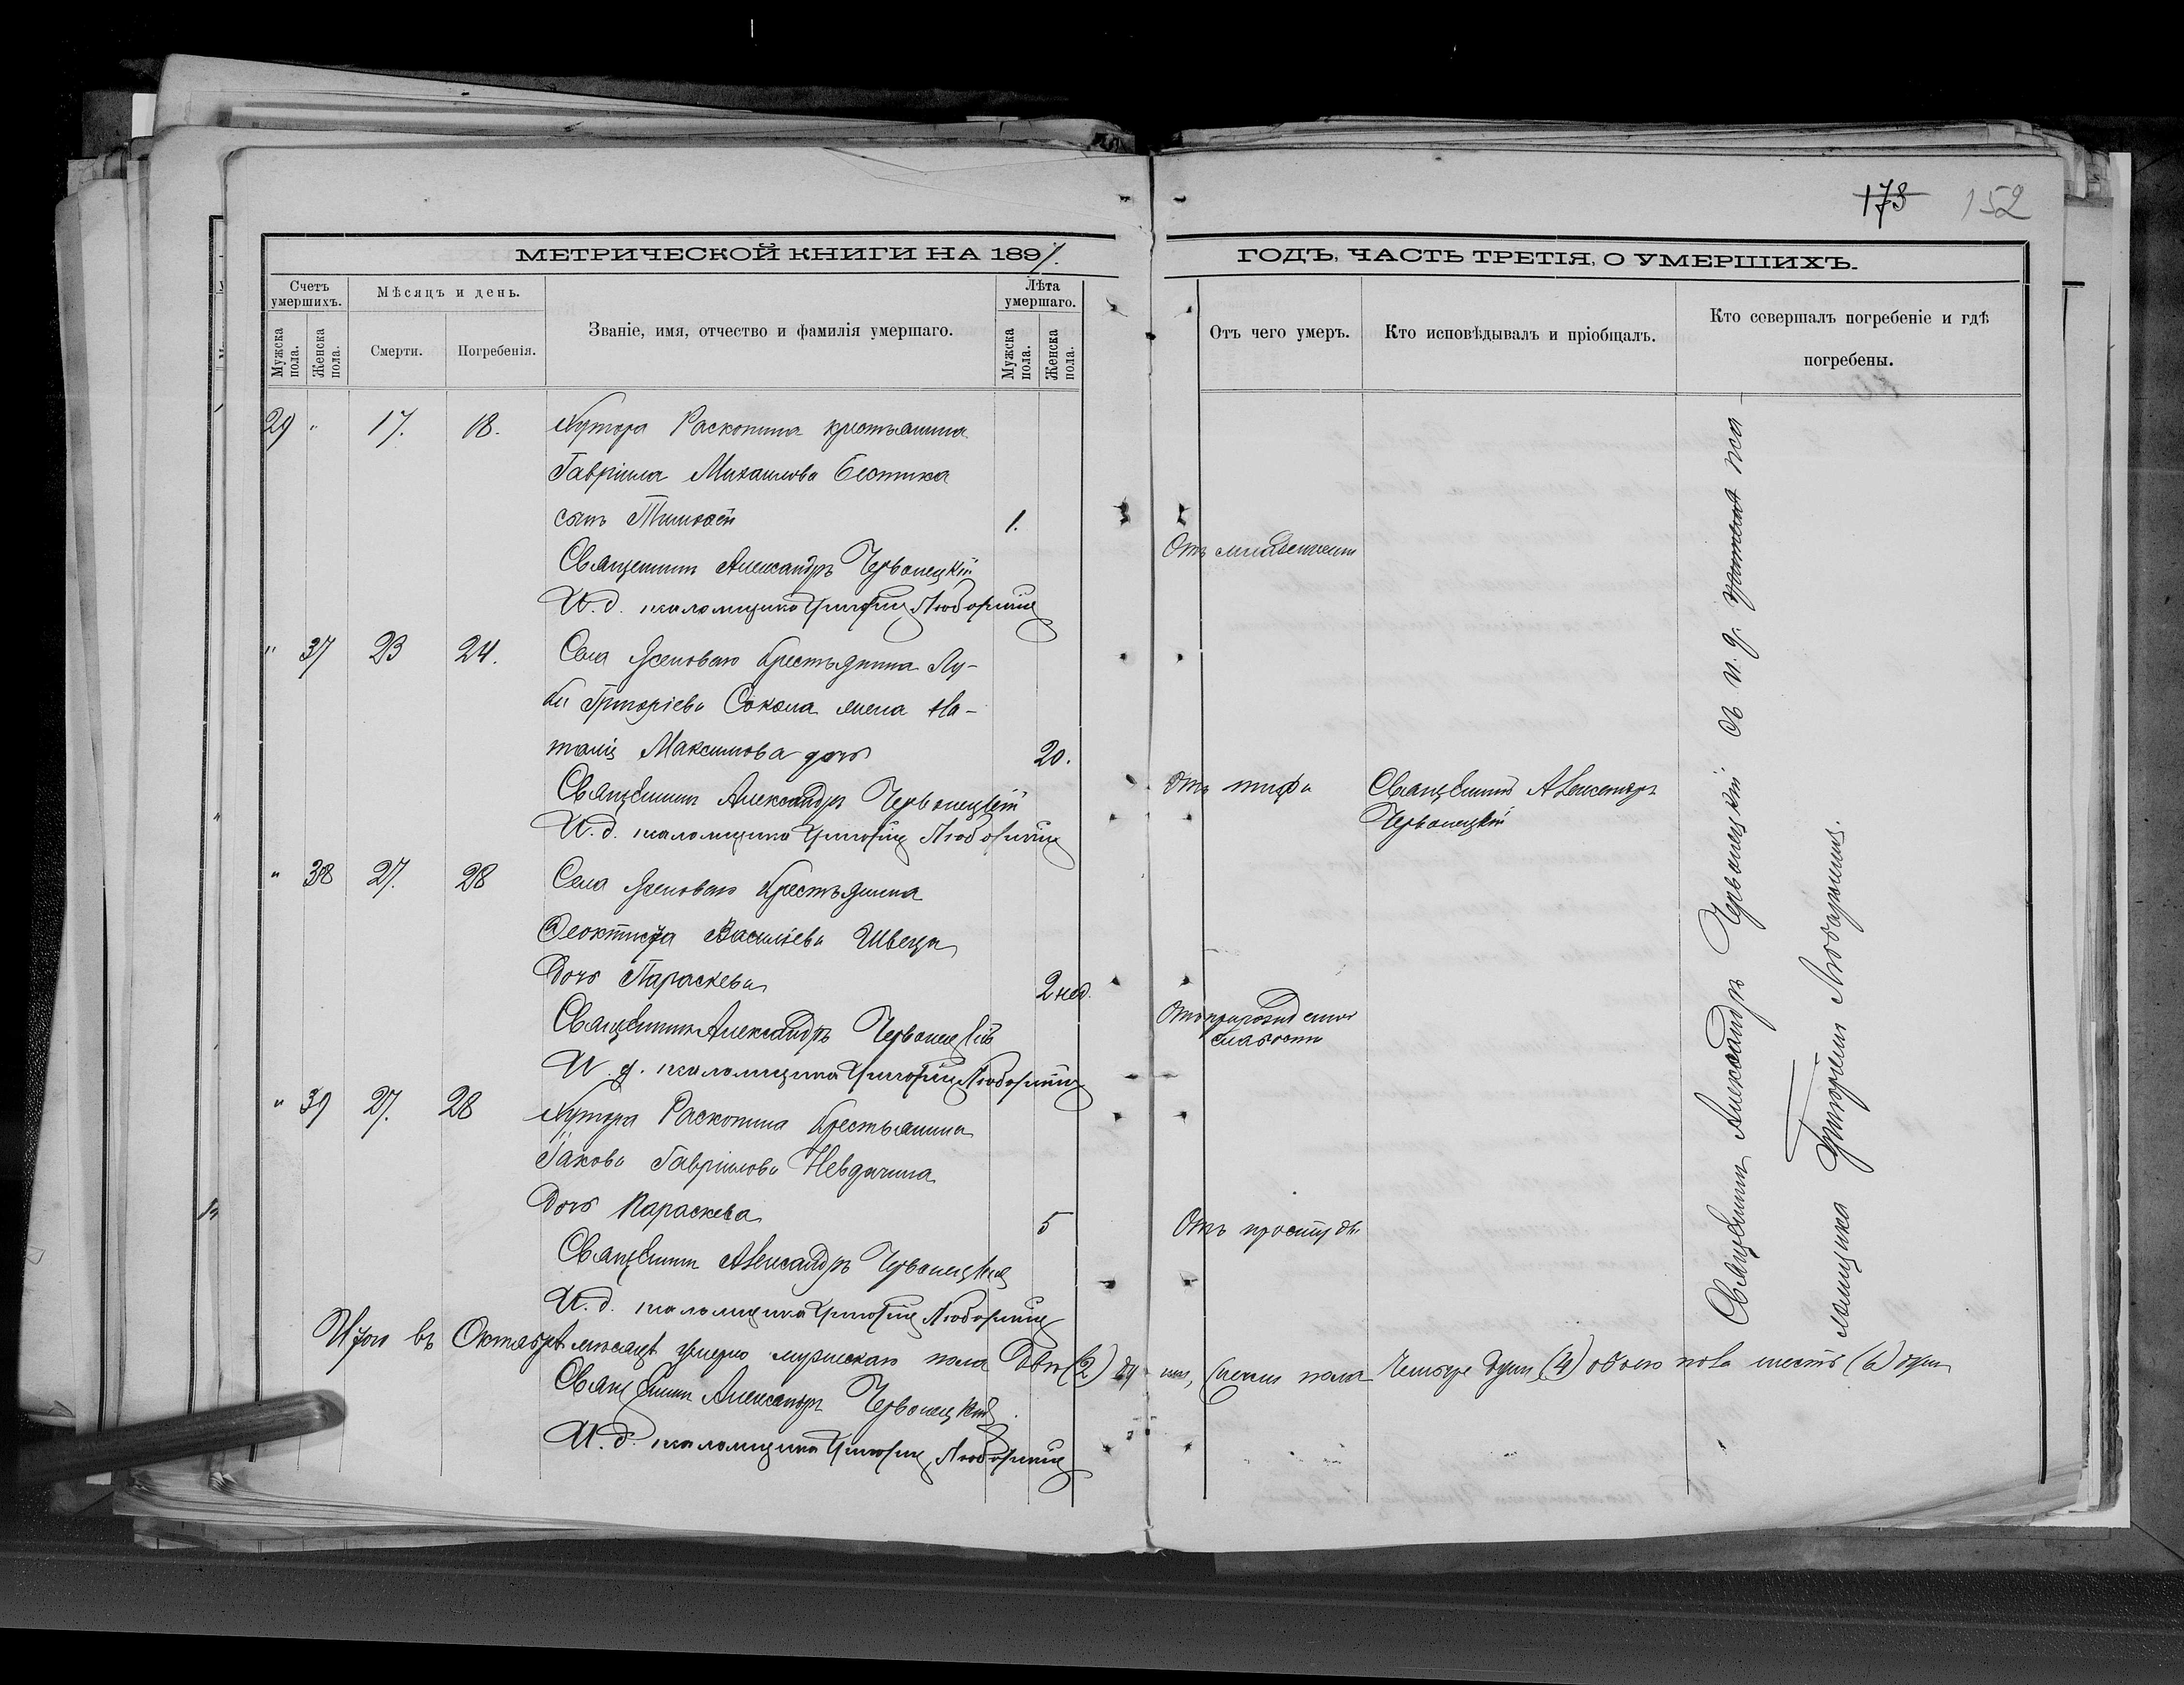 173 152
МЕТРИЧЕСКОЙ КНИГИ НА 1891.
ГОДЪ, ЧАСТЬ ТРЕТІЯ, О УМЕРШИХЪ.
Счетъ умершихъ.
Мѣсяцъ и день.
Званіе, имя, отчество и фамилія умершаго.
Лѣта умершаго.
Мужска пола.
Женска пола.
Смерти.
Погребенія.
Мужска пола.
Женска пола.
Отъ чего умеръ.
Кто исповѣдывалъ и пріобщалъ.
Кто севершалъ погребеніе и гдѣ
погребены.
29 " 17. 18. Хутора Раскопина крестьянина
Гавріила Михаилова
сынъ Тимофей 1.
Отъ младенческой
Священникъ Александръ Червонецкій
И. д. псаломщика Григорій Любарскій
" 37 23 24. Села Ясеноваго крестьянина Лу-
ки Григоріева Сокола жена На-
талія Максимова дочь 20.
Отъ тифа Священникъ Александръ
Червонецкій
Священникъ Александръ Червонецкій
И. д. псаломщика Григорій
" 38 27. 28 Села Ясеноваго крестьянина
Феоктиста Василіева Швеца
дочь Параскева 2 нед.
Отъ природной
слабости
Священникъ Александръ Червонецкій
И. д. псаломщика Григорій
" 39 27. 28 Хутора Раскопина крестьянина
Іакова Гавріилова Невдачина
дочь Параскева 5
Отъ простуды
Священникъ Александръ Червонецкій
И. д. псаломщика Григорій
Итого въ Октябрѣ мѣсяцѣ умерло мужескаго пола двѣ (2) ду- ши, женска пола четыре души (4) обоего пола шесть (6) душъ
Священникъ Александръ Червонецкій.
И. д. псаломщика Григорій
Священникъ Александръ Червонецкій съ и. д. пса
ломщика Григоріемъ